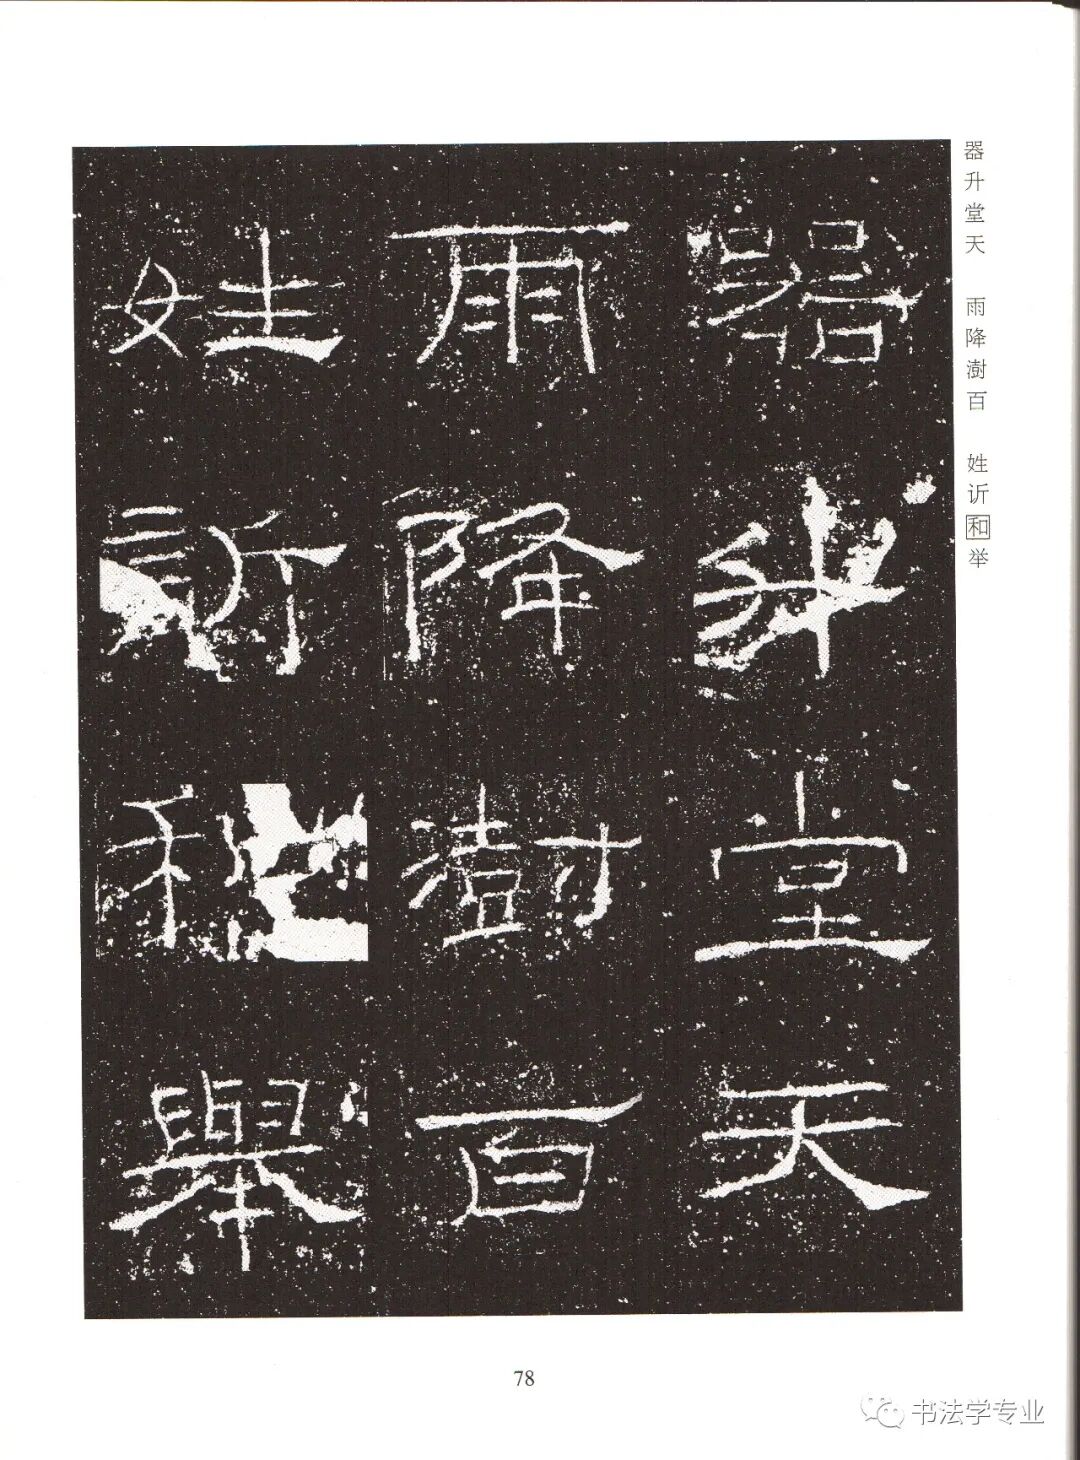 器升堂天
雨降澍百
姓訢和舉
器升堂天 雨降澍百 姓䜣和举
78
书法学专业